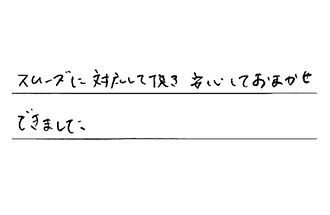 スムーズに対応して頂き安心しておまかせ
できました。